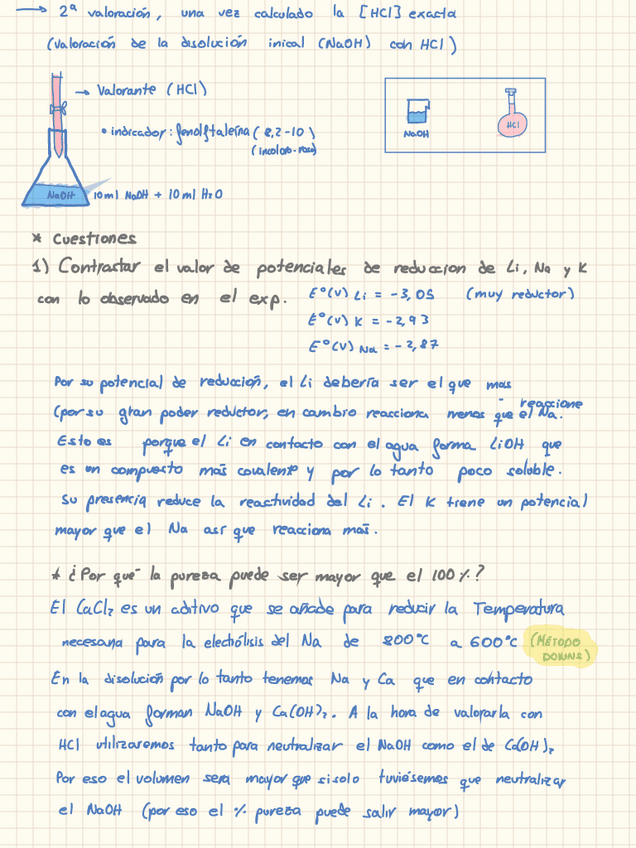 → 2ª valoración, una vez calculado la [HCl] exacta
(valoración de la disolución inical (NaOH) con HCl)
→ Valorante (HCl)
• indicador: fenolftaleína (8,2-10)
(incoloro-rosa)
NaOH
HCl
NaOH
10ml NaOH + 10ml H2O
* Cuestiones
1) Contrastar el valor de potenciales de reduccion de Li, Na y K
con lo observado en el exp.
E°(V) Li = -3,05 (muy reductor)
E°(V) K = -2,93
E°(V) Na = -2,87
Por su potencial de reducción, el Li debería ser el que mas
reaccione
(por su gran poder reductor, en cambio reacciona menos que el Na.
Esto es porque el Li en contacto con el agua forma LiOH que
es un compuesto más covalente y por lo tanto poco soluble.
Su presencia reduce la reactividad del Li. El K tiene un potencial
mayor que el Na así que reacciona más.
* ¿Por qué la pureza puede ser mayor que el 100%?
El CaCl2 es un aditivo que se añade para reducir la Temperatura
necesaria para la electrólisis del Na de 800°C a 600°C (MÉTODO
DOWNS)
En la disolución por lo tanto tenemos Na y Ca que en contacto
con el agua forman NaOH y Ca(OH)2. A la hora de valorarla con
HCl utilizaremos tanto para neutralizar el NaOH como el de Ca(OH)2
Por eso el volumen sera mayor que si solo tuviésemos que neutralizar
el NaOH (por eso el % pureza puede salir mayor)